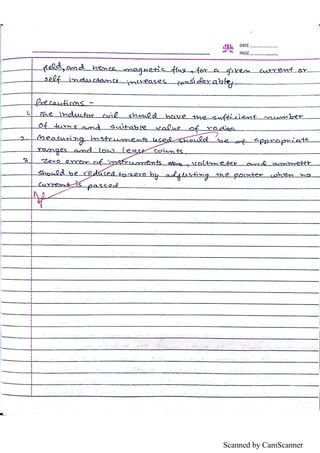 DATE
PAGE
field, and hence magnetic flux, for a given current or
self inductance increases considerably
Precautions -
1. The inductor coil should have the sufficient number
of turns and suitable value of radius
2. Measuring instruments used should be of appropriate
ranges and low least counts.
3. Zero error of instruments voltmeter and ammeter
should be reduced to zero by adjusting the pointer when no
current is passed
Scanned by CamScanner